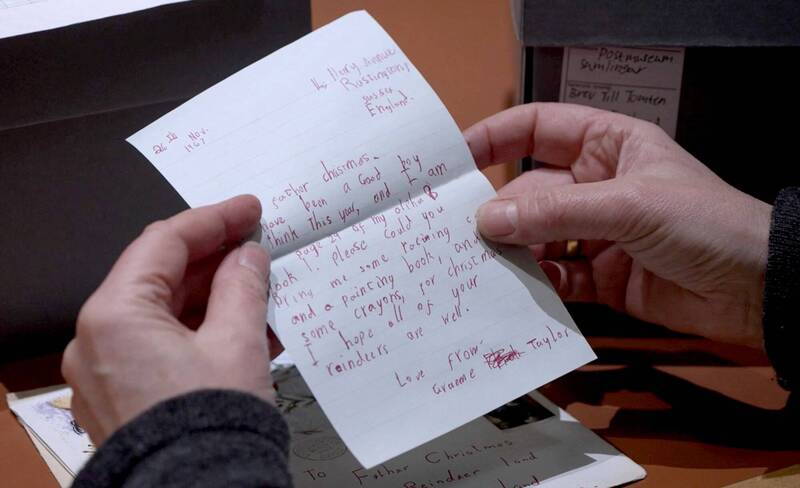 Avenue
Rustington
sussex
England.
26 th Nov.
1967
father christmas.
have been a Good boy
think this year, and I am
page of my
book 1. please could you
Bring me some
and a painting book, and
some crayons, for christmas
I hope all of your
reindeers are well.
Love from.
Graeme Taylor
Postmuseum
samlingar
Brev Till Tomten
To Father Christmas
Reindeer land
land